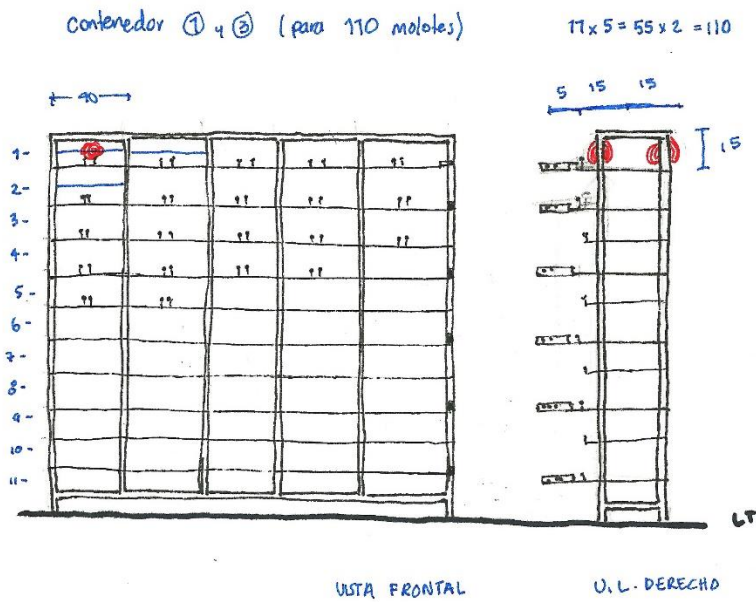 contenedor ① y ③ (para 110 molotes)
11 x 5 = 55 x 2 = 110
40
5 15 15
15
1-
2-
3-
4-
5-
6-
7-
8-
9-
10-
11-
LT
VISTA FRONTAL
V.L. DERECHO